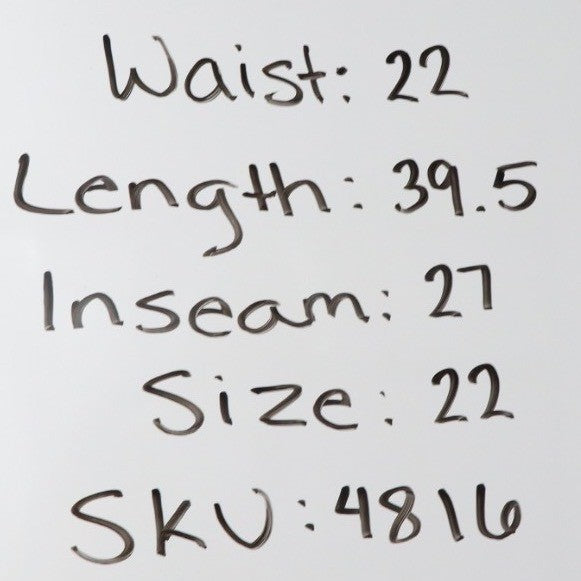 Waist: 22
Length: 39.5
Inseam: 27
Size: 22
SKU: 4816